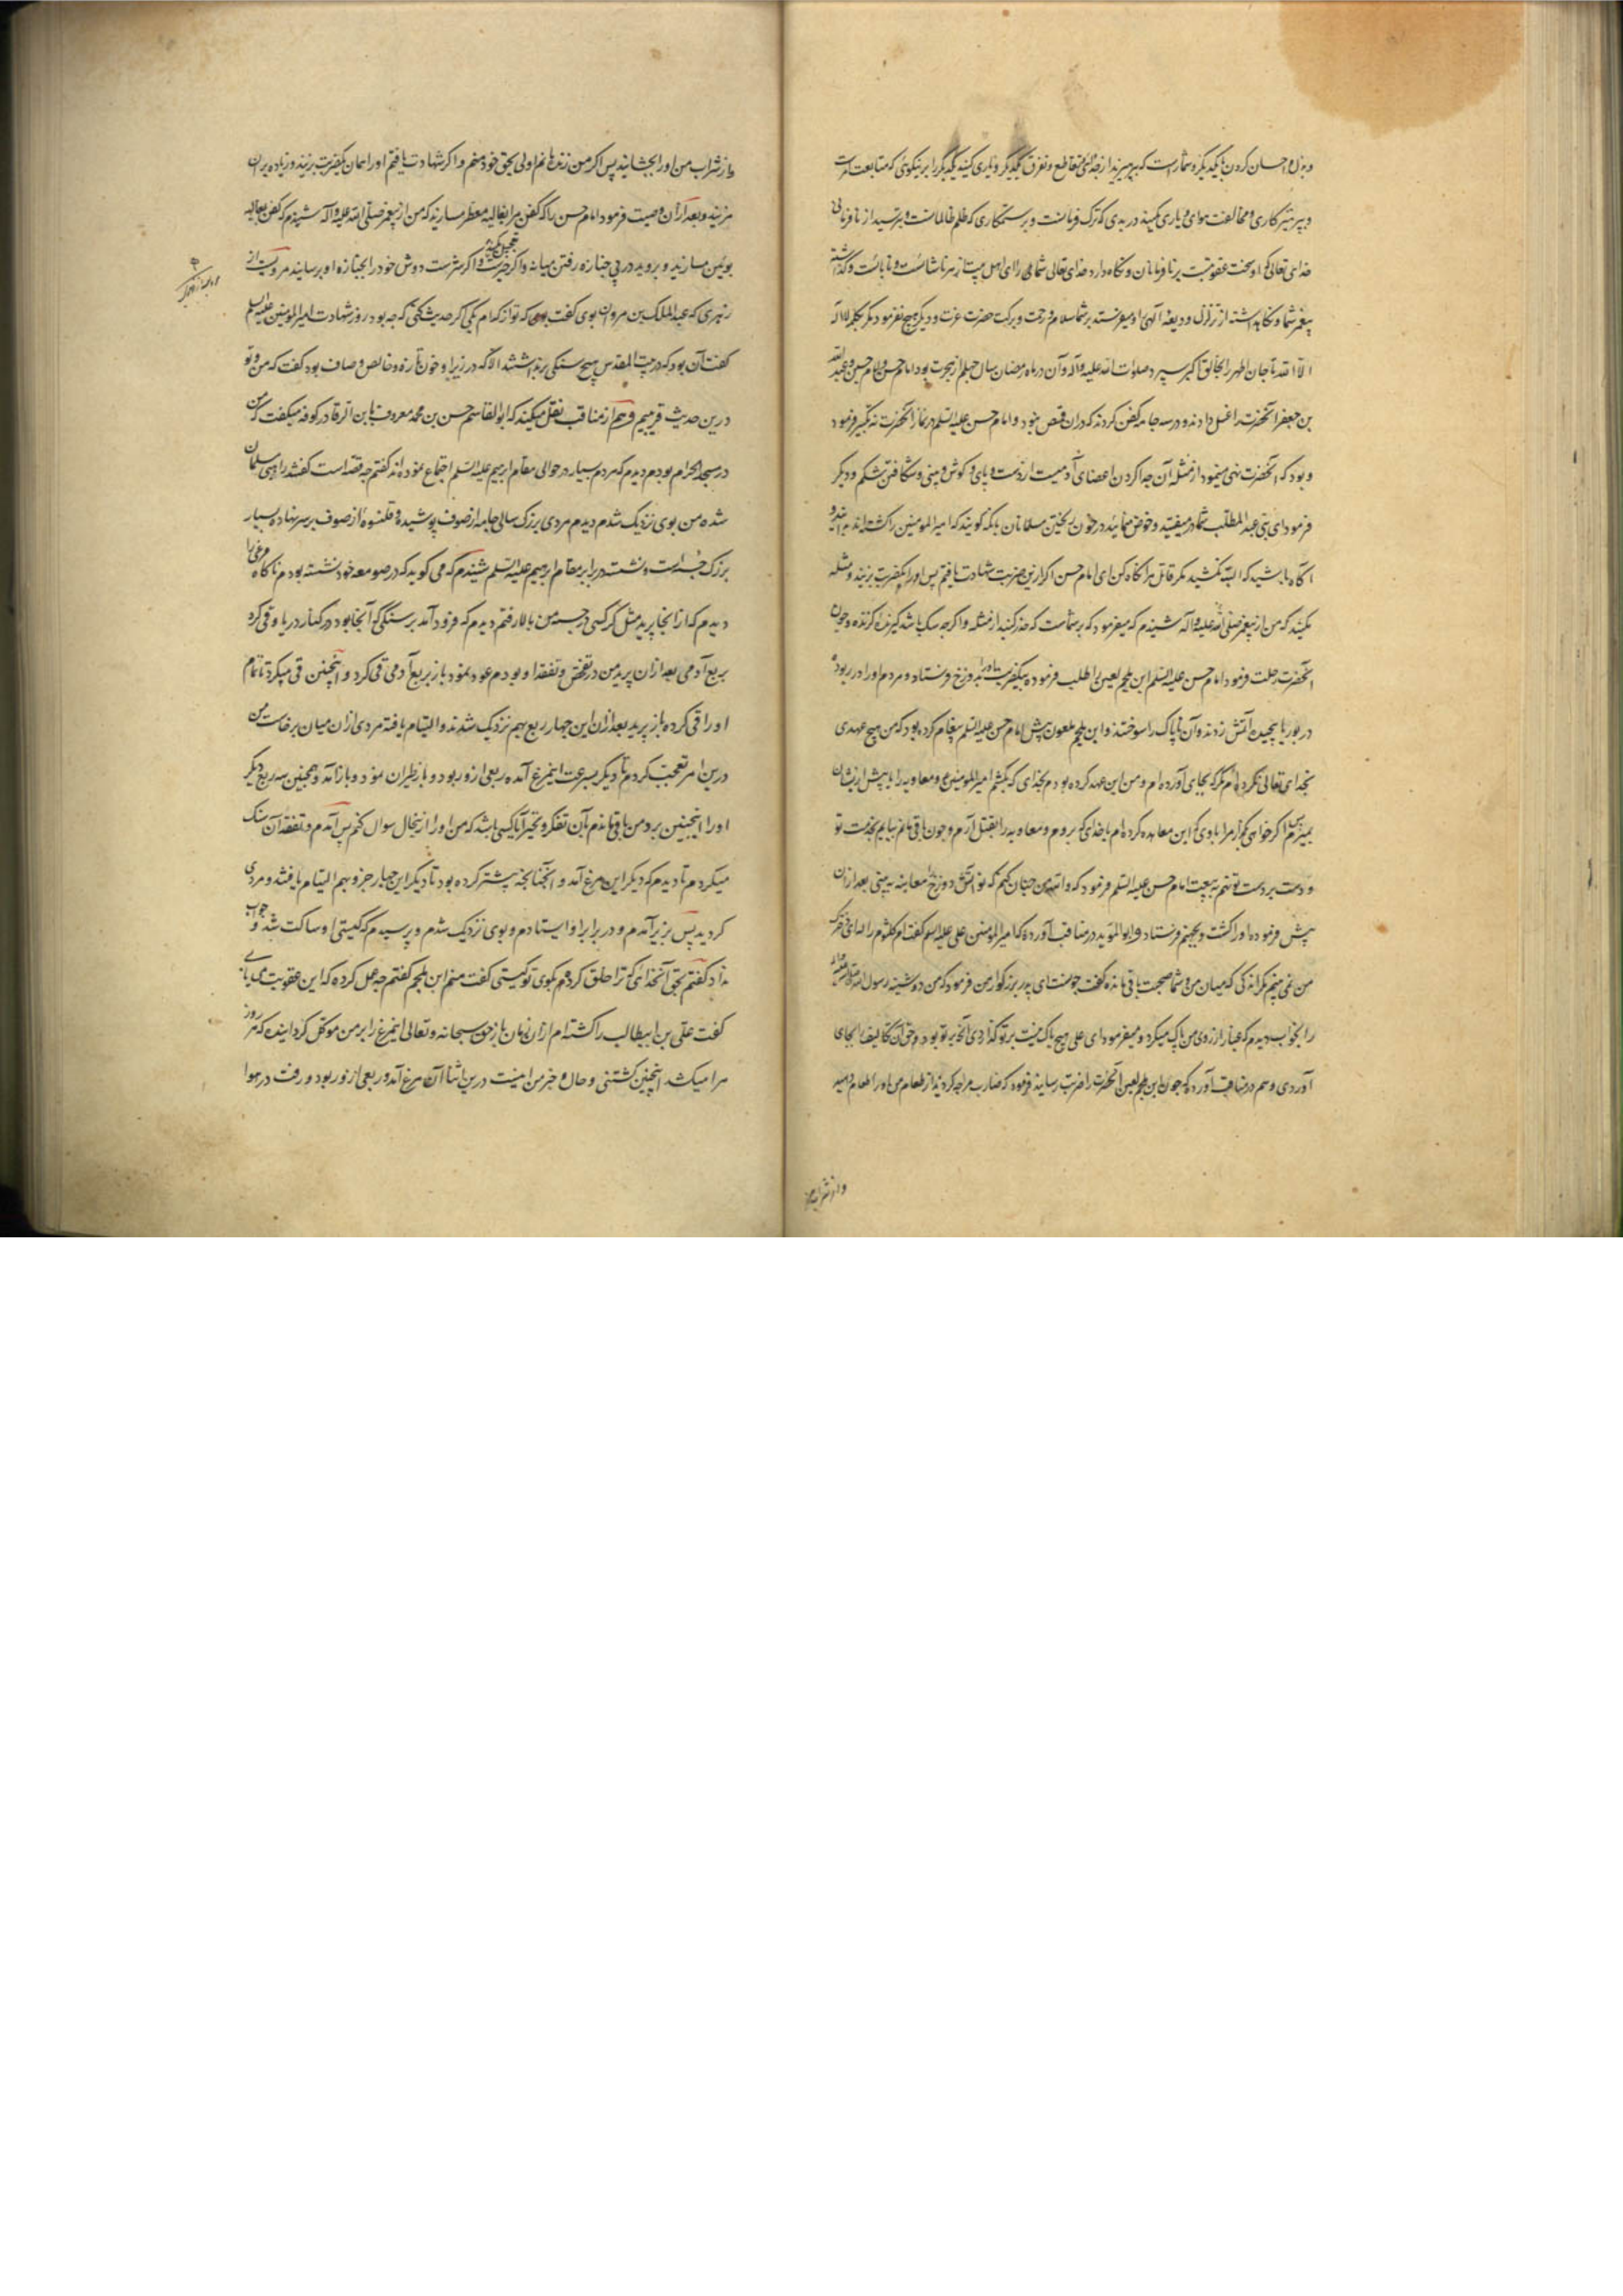 و بذل و احسان کردن با یکدیگر و شماراست که بپرهیزید از جدائی و تقاطع و تفرق یکدیگر و یاری کنید یکدیگر را بر نیکوئی که متابعت امرست
و پرهیزکاری و مخالفت هوای و یاری مکنید در بدی که ترک فرمانست و بر ستمکاری که ظلم ظالمانست و بترسید از نافرمانی
خدای تعالی که او سخت عقوبتست بر نافرمانان و نگاه دارد خدای تعالی شما را ای اهل بیت از هر ناشایست و نابایست و گذاشته
پیغمبر شما و نگاهداشته از تزلزل ودیعه آلهی را و میفرستد بر شما سلام و رحمت و برکت حضرت عزت و دیگر هیچ نفرمود مگر بکلمه لا اله
الا الله تا جان اطهر را بخالق اکبر سپرد صلوات الله علیه و آله و آن در ماه رمضان سال چهلم از هجرت بود و امام حسن و امام حسین و عبد الله
بن جعفر آنحضرت را غسل دادند و در سه جامه کفن کردند که دران قمیص نبود و امام حسن علیه السلم در نماز آنحضرت نه تکبیر فرمود
و بود که آنحضرت نهی مینمود از مثله آن جدا کردن اعضای آدمیست از دست و پای و گوش و بینی و شکافتن شکم و دیگر
فرمود ای بنی عبد المطلب شما در میفتید و خوض منمائید در خون ریختن مسلمانان بآنکه گویند که امیر المؤمنین را کشته‌اند بدانید و
آگاه باشید که البته نکشید مگر قاتل مرا نگاه کن ای امام حسن اگر ازین ضربت شهادت یافتم پس او را یکضربت بزنید و مثله
مکنید که من از پیغمبر صلی الله علیه و آله شنیدم که میفرمود که بر شماست که حذر کنید از مثله و اگرچه سک باشد گیرنده گزنده و چون
آنحضرت رحلت فرمود امام حسن علیه السلم ابن ملجم لعین را طلب فرموده بیکضربت او را بدوزخ فرستاد و مردم او را در ربوده
در بوریا پیچیده آتش زدند و آن ناپاک را سوختند و ابن ملجم ملعون پیش امام حسن علیه السلم پیغام کرده بود که من هیچ عهدی
بخدای تعالی نکرده‌ام مگر که بجای آورده‌ام و من این عهد کرده بودم بخدای که بکشم امیر المؤمنین ع و معاویه را یا پیش ازیشان
بمیرم پس اگر خواهی مرا با وی گذار که این معاهده کرده‌ام با خدای که بروم و معاویه را بقتل آرم و چون باقی مانم بیایم بخدمت تو
و دست بر دست تو نهم به بیعت امام حسن علیه السلم فرمود که والله من چنان کنم که تو آتش دوزخ را معاینه به بینی بعد ازان
پیش فرموده او را کشت و بجهنم فرستاد و ابو المؤید در مناقب آورده که امیر المؤمنین علی علیه السلم گفت ام کلثوم را که ای دخترک
من نمی بینم مگر اندکی که میان من و شما صحبت باقی مانده گفت چونست ای پدر بزرگوار من فرمود که من دوشینه رسول الله را
را بخواب دیدم که غبار از روی من پاک میکرد و میفرمود ای علی هیچ باک نیست بر تو گذاردی آنچه بر تو بود و حق آن تکالیف را بجای
آوردی و هم در مناقب آورده که چون ابن ملجم لعین آنحضرت را ضربت رسانید فرمود که ضارب مرا چه کردید از طعام من او را طعام دهید
و از شراب من
و از شراب من او را بچشانید پس اگر من زنده مانم اولی بحق خود منم و اگر شهادت یافتم او را همان یکضربت بزنید و زیاده بران
مزنید و بعد ازان وصیت فرمود امام حسن را که کفن مرا بغالیه معطر مسازید که من از پیغمبر صلی الله علیه و آله شنیدم که کفن بغالیه
بوئین مسازید و بروید در پی جنازه رفتن میانه و اگر خیرست تعجیل کنید و اگر شرست دوش خود را بجنازه او برسانید مرویست از
زهری که عبد الملک بن مروان بوی گفت که تو از کدام یکی اگر حدیث کنی که چه بود روز شهادت امیر المؤمنین علیه السلم
گفت آن بود که در بیت المقدس هیچ سنگی برنداشتند الا که در زیر او خون تازه و خالص و صاف بود گفت که من و تو
درین حدیث قرینیم و هم از مناقب نقل میکند که ابو القاسم حسن بن محمد معروف بابن الرفا در کوفه میگفت که من
در مسجد الحرام بودم دیدم که مردم بسیار در حوالی مقام ابرهیم علیه السلم اجتماع نموده‌اند گفتم چه قصه است گفتند راهبی مسلمان
شده من بوی نزدیک شدم دیدم مردی بزرگ سالی جامه از صوف پوشیده و قلنسوه از صوف بر سر نهاده بسیار
بزرگ جثه است و نشسته در برابر مقام ابرهیم علیه السلم شنیدم که می گوید که در صومعه خود نشسته بودم ناگاه مرغی را
دیدم که از آنجا پرید مثل کرکسی در جسه من بالا رفتم دیدم که فرود آمد بر سنگی که آنجا بود در کنار دریا و قی کرد
بربع آدمی بعد ازان پرید من در تفحص و تفقد او بودم عود نمود باز بربع آدمی قی کرد و اینچنین قی میکرد تا تمام
او را قی کرده باز پرید بعد ازان این چهار ربع بهم نزدیک شدند و التیام یافته مردی ازان میان برخاست من
درین امر تعجب کردم تا دیگر بسرعت این مرغ آمده ربعی ازو ربود و باز طیران نمود و باز آمد و همچنین سه ربع دیگر
او را اینچنین برد من باقی ماندم بآن تفکر و تحیر آیا کسی باشد که من او را ازینحال سوال کنم پس آمدم و تفقد آن سنک
میکردم تا دیدم که دیگر این مرغ آمد و آنچنانچه پیشتر کرده بود تا دیگر این چهار جزو بهم التیام یافتند و مردی
گردید پس بزیر آمدم و در برابر او ایستادم و بوی نزدیک شدم و پرسیدم که کیستی او ساکت شد و جواب
نداد گفتم بحق آنخدائی که ترا خلق کرد که بگوی تو کیستی گفت منم ابن ملجم گفتم چه عمل کرده که این عقوبت می یابی
گفت علی بن ابیطالب را کشته‌ام ازان زمان باز حق سبحانه و تعالی این مرغ را بر من موکل گردانیده که هر روز
مرا میکشد اینچنین کشتنی و حال و خبر من اینست درین اثنا آن مرغ آمد و ربعی ازو ربود و رفت در هوا